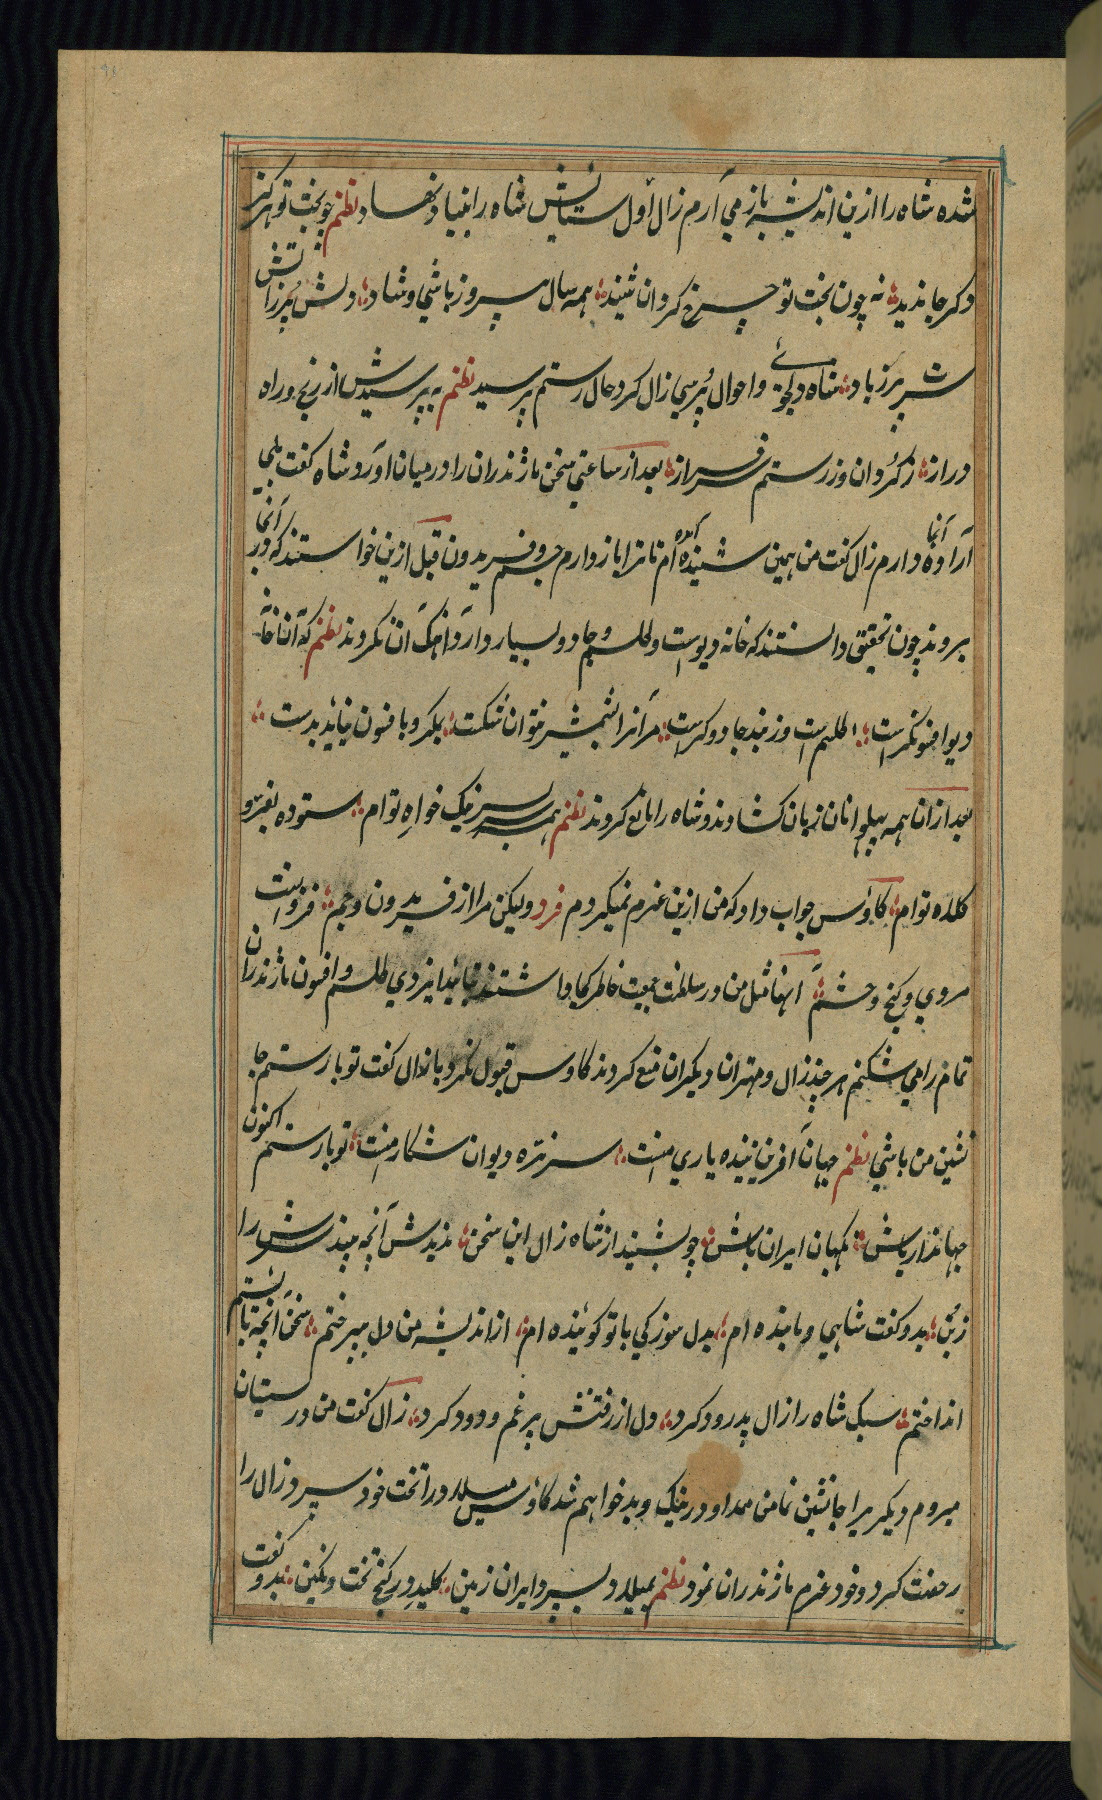 شده شاه را ازین اندیشه باز می آرم زال اول ستایش شاه را بنیاد نهاد نظم چو بخت تو هرکز
دکر جا ندید نه چون بخت تو چرخ کردان شنید همه سال پیروز باشی و شاد دلش پر ز دانش
سرت پر ز باد شاه دلجوئے و احوال پرسی زال کرد حال رستم پرسید نظم به پرسیدش از رنج و راه
دراز ز کردان وز رستم سرفراز بعد از ساعتی سخن ماژندران را درمیان آورد شاه کفت بلی
اراده آنجا دارم زال کفت من همین شنیده آمده ام تا ترا باز دارم جم و فریدون قبل ازین خواستند که در آنجا
بروند چون تحقیق دانستند که خانه دیوست و طلسم و جادو بسیار دارد آهنک آن نکردند نظم که آن خانه
دیو افسونکراست طلسم است وز بند جادو کراست مر آنرا بشمشیر نتوان شکست بمکر و بافسون نیاید بدست
بعد ازان همه پهلوانان زبان کشادند و شاه را مانع کردند نظم همه سربسر نیک خواه تو ام ستوده بفر و
کلاه تو ام کاؤس جواب داد که من ازین عزم نمیکردم فرد ولیکن مرا از فریدون و جم فزونست
مردی و کنج و حشم آنها مثل من در سلطنت جمعیت خاطر کجا داشتند بتائید ایزدی طلسم و افسون ماژندران
تمام را می شکنم هر چند زال و مهتران دیکران منع کردند کاوس قبول نکرد با زال کفت تو با رستم جا
نشین من باشی نظم جهان آفریننده یاری منست سر نره دیوان شکار منست تو با رستم اکنون
جهاندار باش نکهبان ایران باش چو بشنید از شاه زال این سخن ندیدش آنچه پیند سرش را
ز بن بدو کفت شاهی و ما بنده ام بدل سوزکی با تو کوینده ام از اندیشه من دل بپرداختم سخن آنچه بایستم
انداختم سبک شاه را زال پدرود کرد دل از رفتنش پر غم و دود کرد زال کفت من در سیستان
میروم دیکر یرا جانشین نما من ممد او در نیک و بد خواهم شد کاؤس میلاد را تخت خود سپرد زال را
رخصت کرد و خود عزم ماژندران نمود نظم بمیلاد بسپرد ایران زمین کلید در کنج تخت و نکین بدو کفت